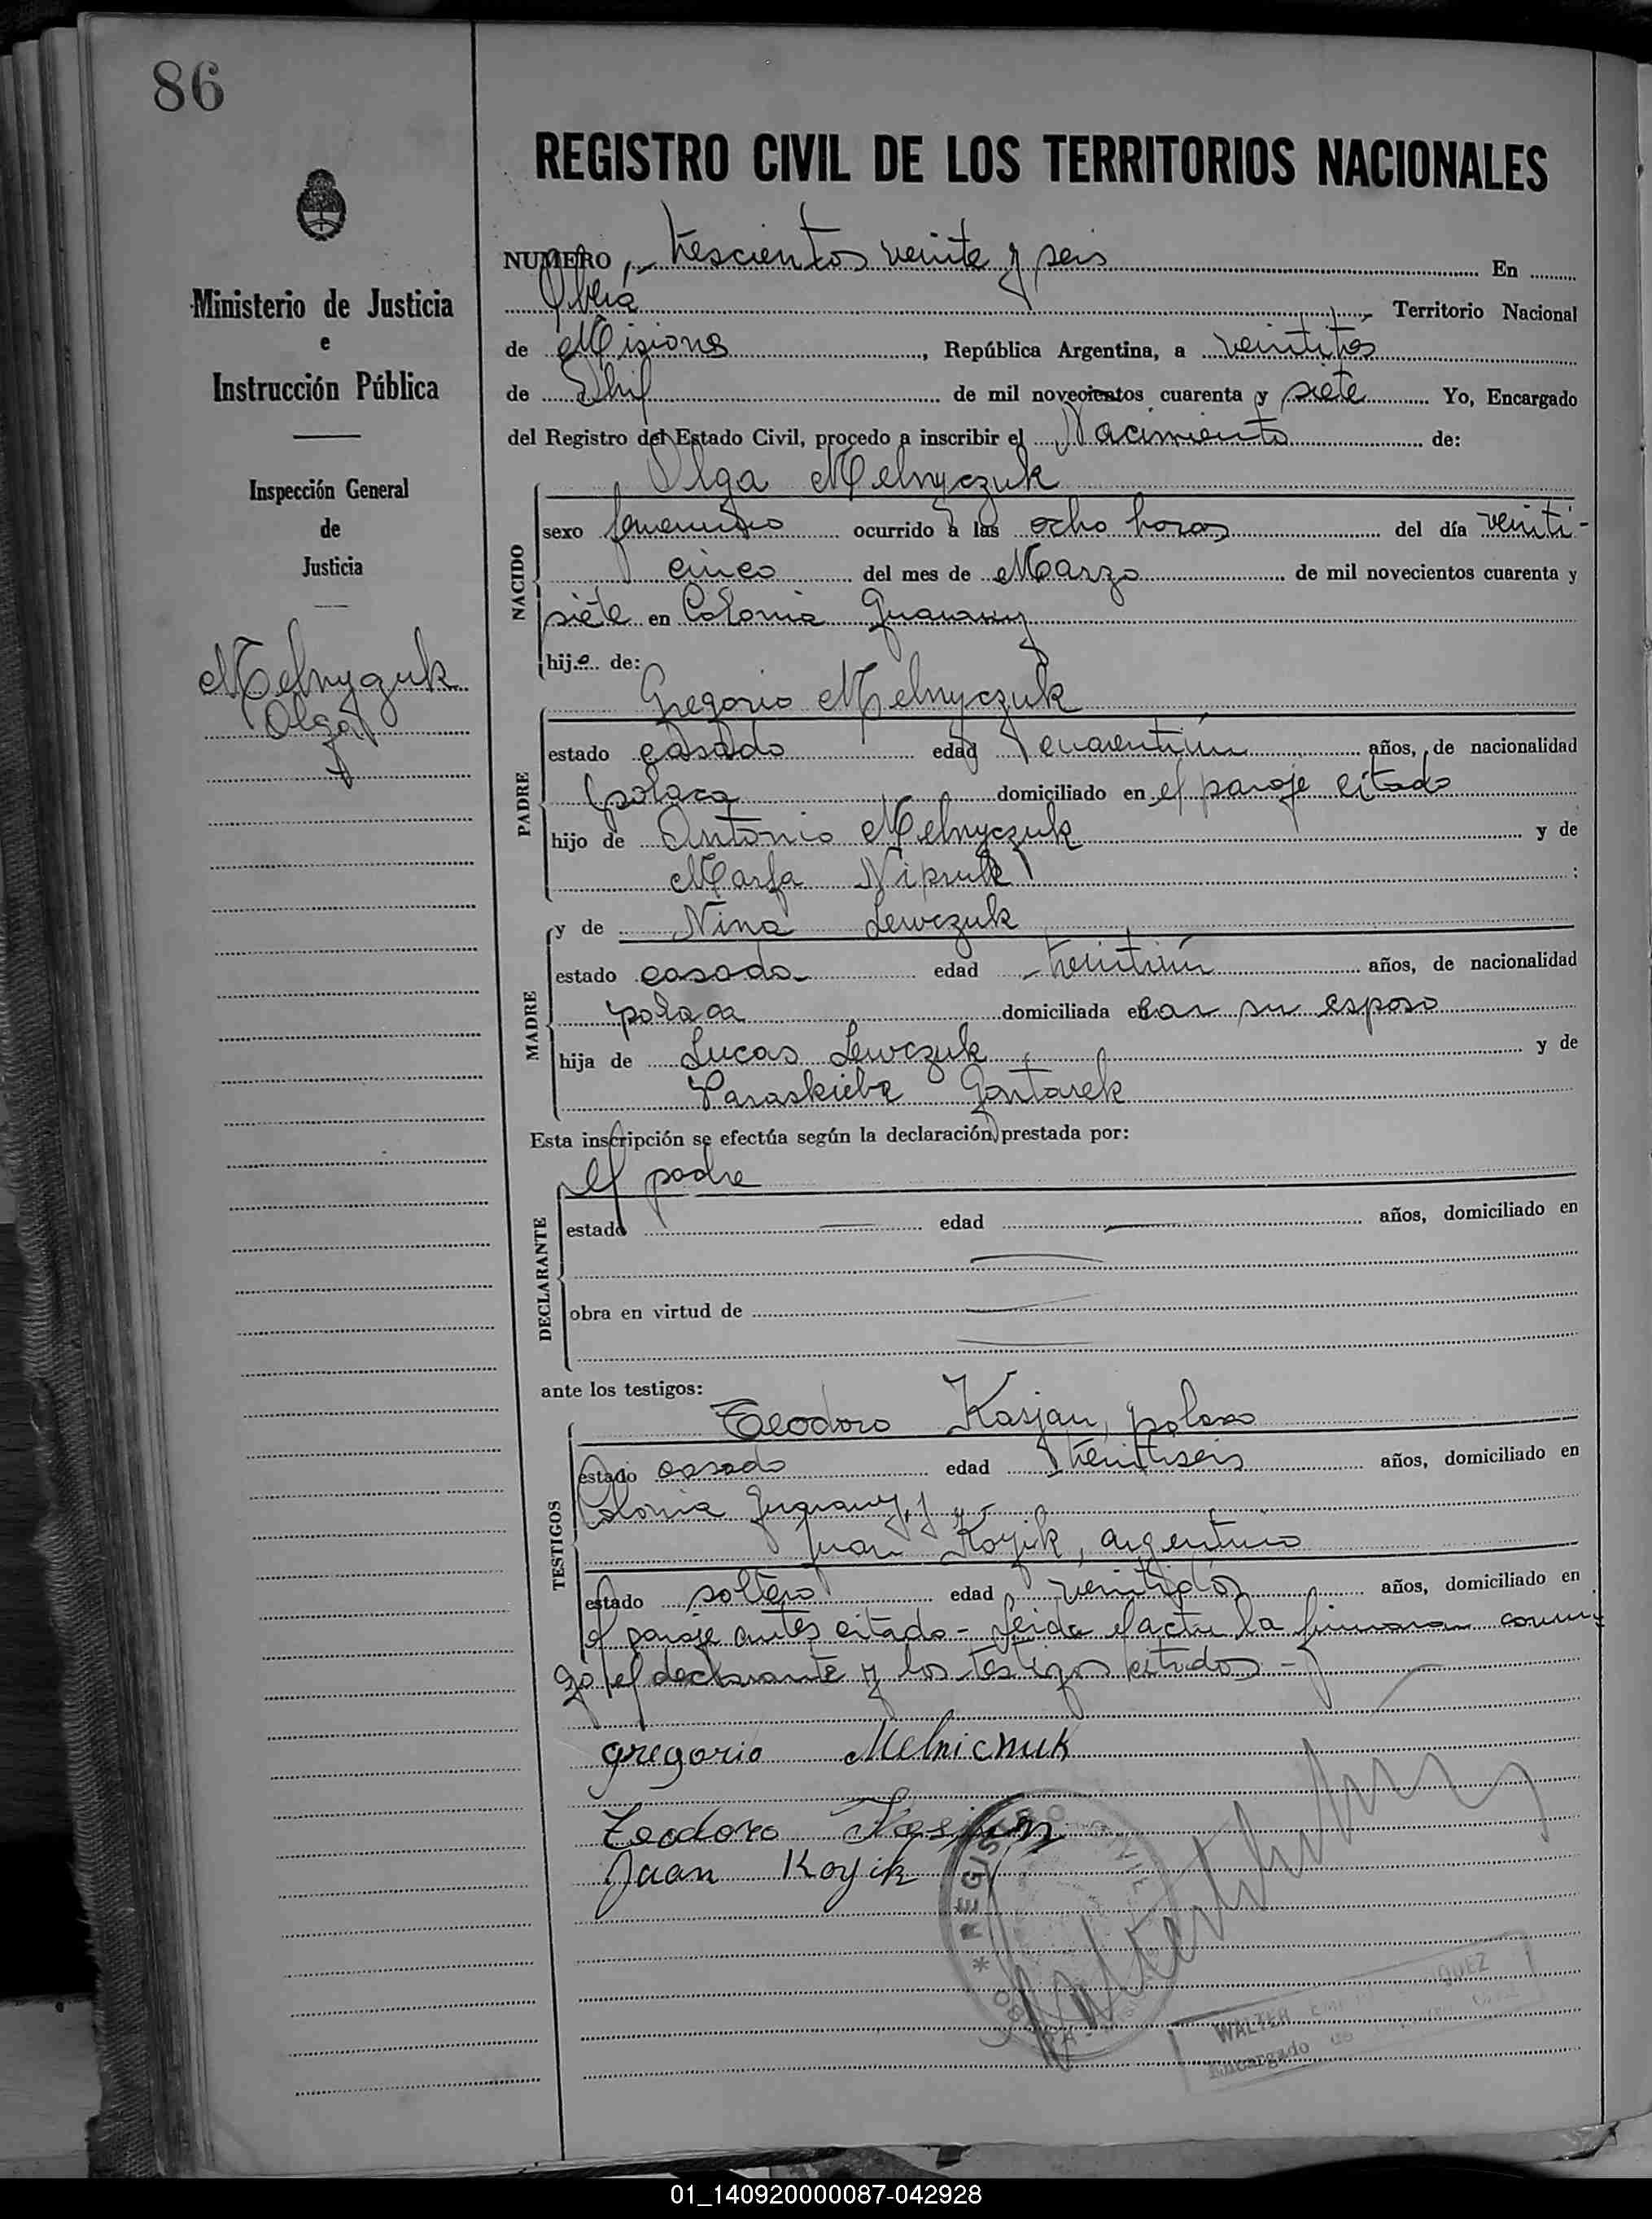 86
REGISTRO CIVIL DE LOS TERRITORIOS NACIONALES
Ministerio de Justicia
e
Instrucción Pública
Inspección General
de
Justicia
Melnyczuk
Olga
NUMERO trescientos veinte y seis En
Oberá Territorio Nacional
de Misiones, República Argentina, a veintitrés
de Abril de mil novecientos cuarenta y siete Yo, Encargado
del Registro del Estado Civil, procedo a inscribir el Nacimiento de:
Olga Melnyczuk
NACIDO
sexo femenino ocurrido a las ocho horas del día veinti-
cinco del mes de Marzo de mil novecientos cuarenta y
siete en Colonia Guarany
hija de:
Gregorio Melnyczuk
PADRE
estado casado edad cuarentiún años, de nacionalidad
polaca domiciliado en el paraje citado
hijo de Antonio Melnyczuk y de
Marfa :
y de Nina Lewczuk
MADRE
estado casada edad treintiún años, de nacionalidad
polaca domiciliada con su esposo
hija de Lucas Lewczuk y de
Paraskieba Gontarek
Esta inscripción se efectúa según la declaración prestada por:
el padre
DECLARANTE
estado edad años, domiciliado en
obra en virtud de
ante los testigos:
Teodoro Kasjan, polaco
TESTIGOS
estado casado edad treintiseis años, domiciliado en
Colonia Guarany, y
Juan Koyik, argentino
estado soltero edad veintidós años, domiciliado en
el paraje antes citado - leida el acta la firmaron conmi-
go el declarante y los testigos citados -
gregorio Melnichuk
Teodoro
Juan Koyik
REGISTRO CIVIL
WALTER
Encargado de
01_140920000087-042928